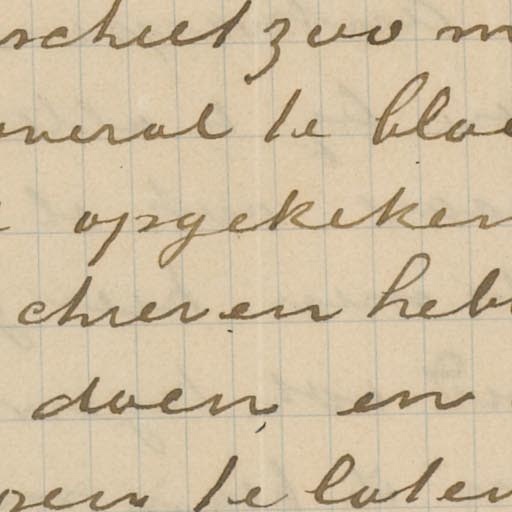 schiet zoo m
overal te bloe
opgekeken
chreven heb
doen en
zen te laten